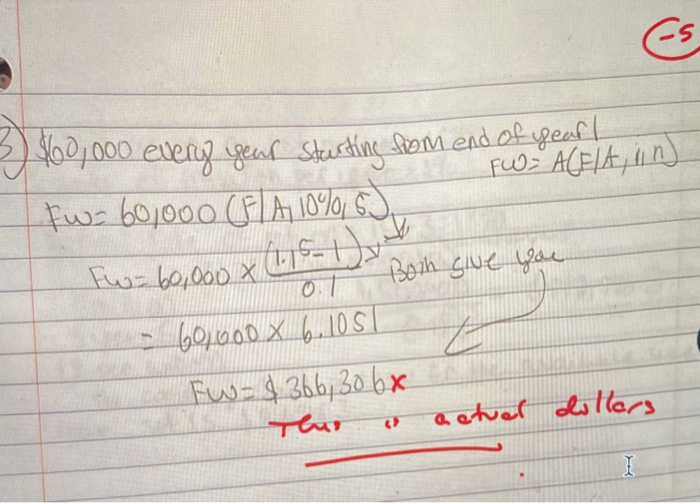 -5
3) $60,000 every year starting from end of year 1
FW = A(F/A, i, n)
FW = 60,000 (F/A, 10%, 5)
FW = 60,000 × (1.1^5 - 1) / 0.1 Both give you
= 60,000 × 6.1051
FW = $366,306 x
This is actual dollars